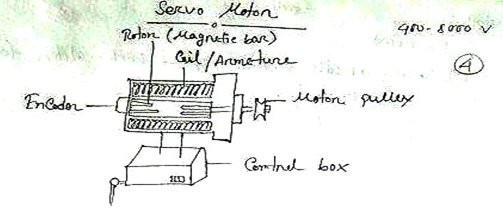 Servo Motor
400-8000 V
Rotor (Magnetic bar)
4
Coil/Armature
Encoder
Motor pulley
Control box